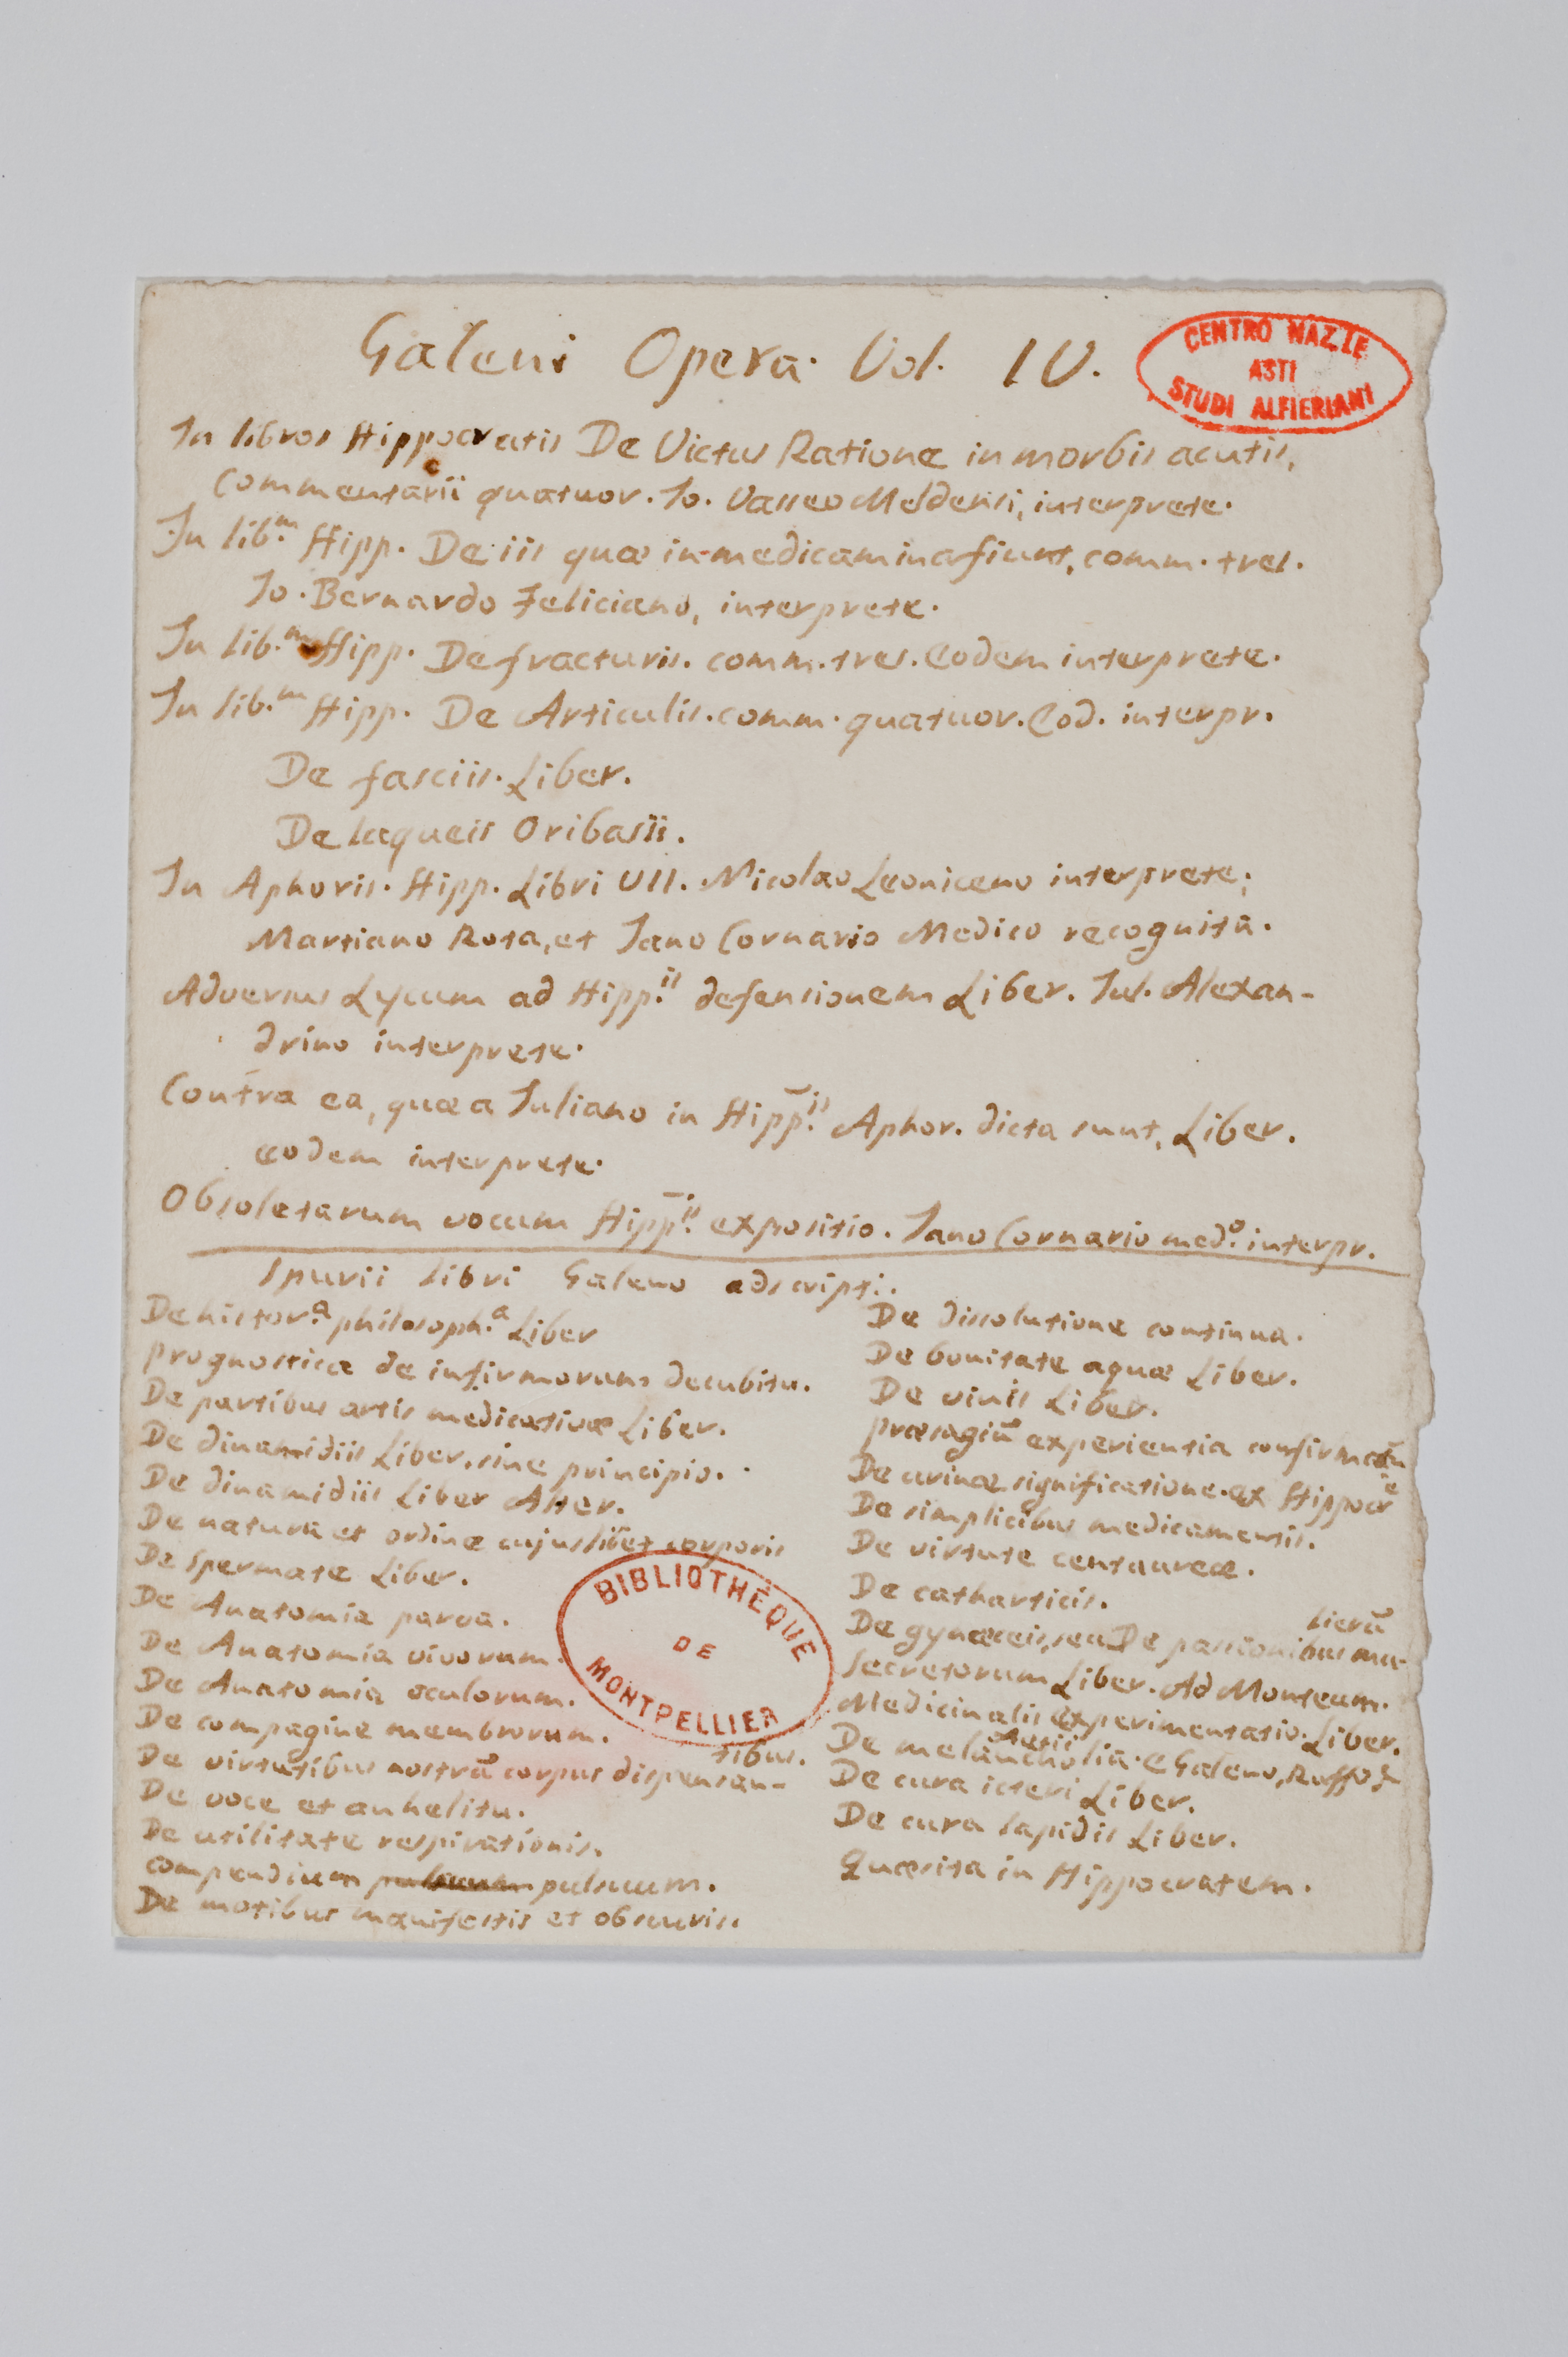 Galeni Opera. Vol. IV.
CENTRO NAZ.LE
ASTI
STUDI ALFIERIANI
In libros Hippocratis De Victus Ratione in morbis acutis,
Commentarii quatuor. Io. Vasseo Meldensi, interprete.
In lib.m Hipp. De iis quæ in medicamina fiunt, comm. tres.
Io. Bernardo Feliciano, interprete.
In lib.m Hipp. De fracturis. comm. tres. Eodem interprete.
In lib.m Hipp. De Articulis. comm. quatuor. Eod. interpr.
De fasciis. Liber.
De laqueis Oribasii.
In Aphoris. Hipp. Libri VII. Nicolao Leoniceno interprete;
Martiano Rota, et Iano Cornario Medico recognita.
Adversus Lycum ad Hipp.is defensionem Liber. Iul. Alexan-
drino interprete.
Contra ea, quæ a Iuliano in Hipp.is Aphor. dicta sunt, Liber.
eodem interprete.
Obsoletarum vocum Hipp.is expositio. Iano Cornario med.o interpr.
Spurii libri Galeno adscripti.
De histor.a philosoph.a Liber
prognostica de infirmorum decubitu.
De partibus artis medicativæ Liber.
De dinamidiis Liber, sine principio.
De dinamidiis Liber Alter.
De natura et ordine cujuslibet corporis
De spermate Liber.
De Anatomia parva.
De Anatomia vivorum.
De Anatomia oculorum.
De compagine membrorum.
De virtutibus nostrū corpus dispensan-
tibus.
De voce et anhelitu.
De utilitate respirationis.
compendium pulsuum pulsuum.
De motibus manifestis et obscuris.
BIBLIOTHÈQUE
DE
MONTPELLIER
De dissolutione continua.
De bonitate aquæ Liber.
De vinis Liber.
præsagiū experientia confirmatū
De urinæ significatione. ex Hippocre
De simplicibus medicamentis.
De virtute centaureæ.
De catharticis.
De gynæceis, seu De passionibus mu-
lierū
Secretorum Liber. Ad Monteum.
Medicinalis experimentatio. Liber.
De melancholia. e Galeno, Ruffo &
Aetii
De cura icteri Liber.
De cura lapidis Liber.
Quæsita in Hippocratem.